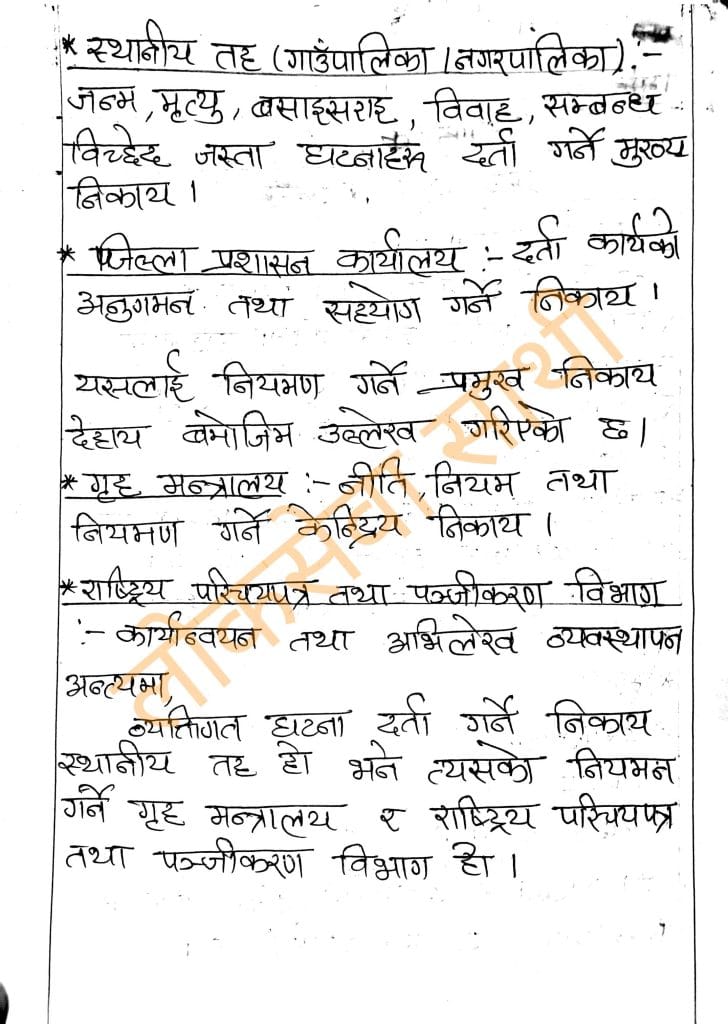 * स्थानीय तह (गाउँपालिका / नगरपालिका) :-
जन्म, मृत्यु, बसाइसराइ, विवाह, सम्बन्ध
विच्छेद जस्ता घटनाहरू दर्ता गर्ने मुख्य
निकाय ।
* जिल्ला प्रशासन कार्यालय :- दर्ता कार्यको
अनुगमन तथा सहयोग गर्ने निकाय ।
यसलाई नियमण गर्ने प्रमुख निकाय
देहाय बमोजिम उल्लेख गरिएको छ ।
* गृह मन्त्रालय :- नीति, नियम तथा
नियमण गर्ने केन्द्रिय निकाय ।
* राष्ट्रिय परिचयपत्र तथा पञ्जीकरण विभाग
:- कार्यान्वयन तथा अभिलेख व्यवस्थापन
अन्त्यमा,
व्यक्तिगत घटना दर्ता गर्ने निकाय
स्थानीय तह हो भने त्यसको नियमन
गर्ने गृह मन्त्रालय र राष्ट्रिय परिचयपत्र
तथा पञ्जीकरण विभाग हो ।
लोकसेवा साथी